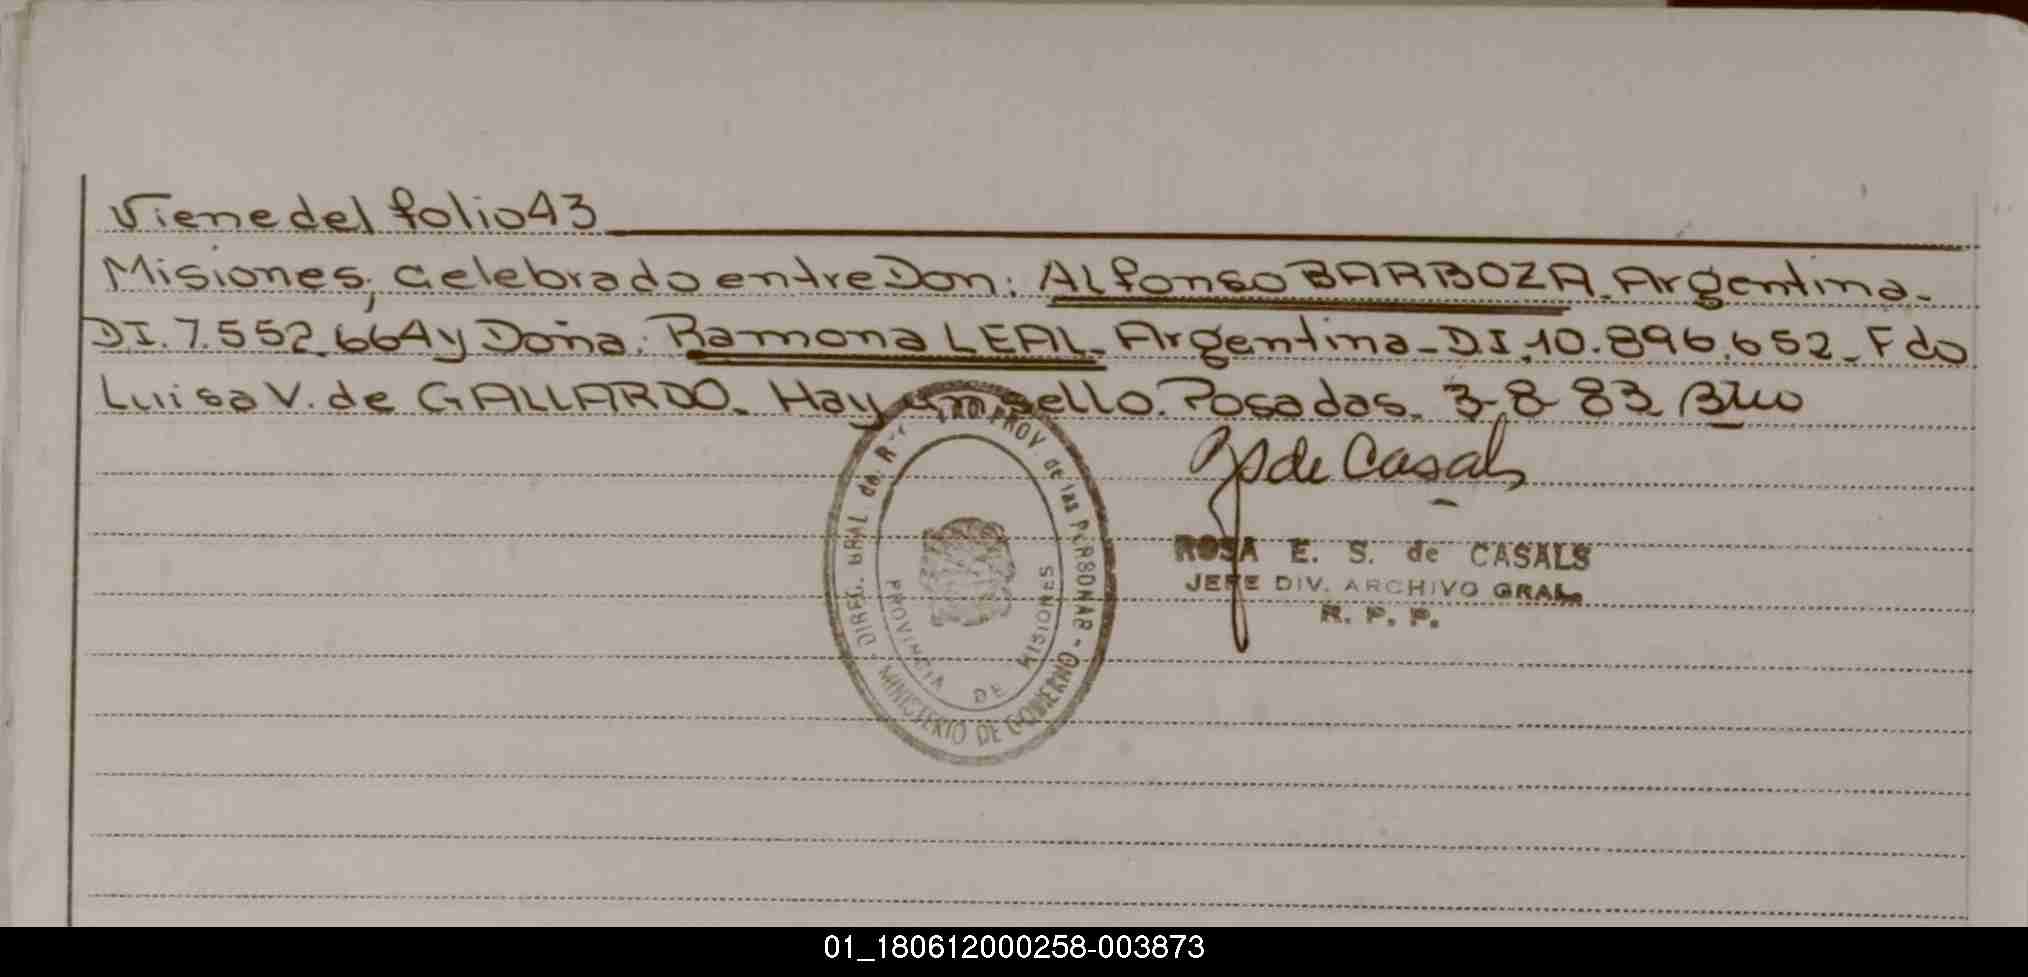 Viene del folio 43
Misiones, celebrado entre Don: ALfonso BARBOZA. Argentina.
DI. 7.552.664 y Doña: Ramona LEAL. Argentina - DI. 10.896.652 - Fdo
Luisa V. de GALLARDO. Hay un sello. Posadas. 3-8-83
de Casals
ROSA E. S. de CASALS
JEFE DIV. ARCHIVO GRAL.
R. P. P.
DIREC. GRAL de PROV. de las PERSONAS - MINISTERIO DE GOBIERNO -
PROVINCIA DE MISIONES
01_180612000258-003873